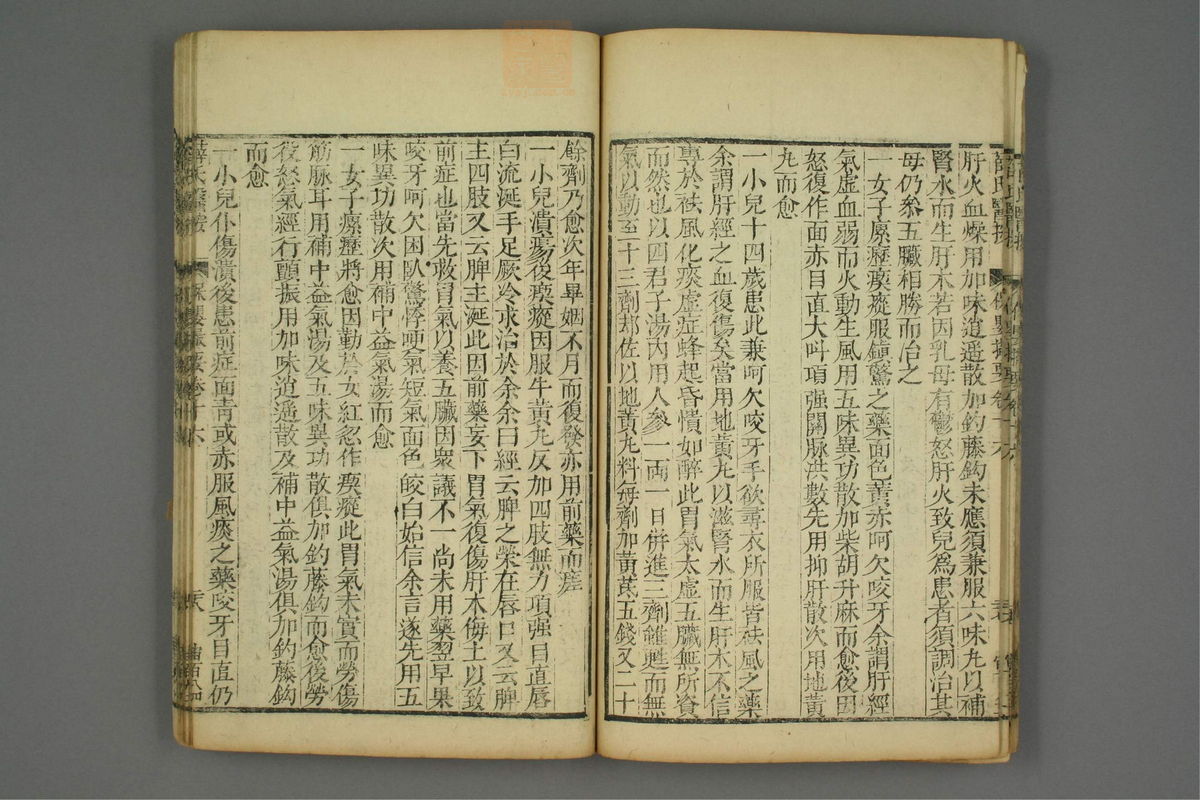 肝火血燥用加味逍遥散加鈎藤鈎未應須兼服六味丸以補
腎水而生肝木若因乳母有鬱怒肝火致兒爲患者須調治其
母仍叅五臟相勝而治之
一女子瘰癧瘈瘲服鎮驚之藥面色黃赤呵欠咬牙余謂肝經
氣虛血弱而火動生風用五味異功散加柴胡升麻而愈後因
怒復作面赤目直大叫項强關脉洪數先用抑肝散次用地黃
丸而愈
一小兒十四歲患此兼呵欠咬牙手欲尋衣所服皆祛風之藥
余謂肝經之血復傷矣當用地黃丸以滋腎水而生肝木不信
專於祛風化痰虛症蜂起昏憒如醉此胃氣太虛五臟無所資
而然也以四君子湯內用人參一兩一日併進三劑雖甦而無
氣以動至二十三劑却佐以地黃丸料每劑加黃茋五錢又二十
餘劑乃愈次年畢姻不月而復發亦用前藥而痊
一小兒潰瘍後瘈瘲因服牛黃丸反加四肢無力項强目直唇
白流涎手足厥冷求治於余余曰經云脾之榮在唇口又云脾
主四肢又云脾主涎此因前藥妄下胃氣復傷肝木侮土以致
前症也當先救胃氣以養五臟因衆議不一尚未用藥翌早果
咬牙呵欠困臥驚悸哽氣短氣面色㿠白始信余言遂先用五
味異功散次用補中益氣湯而愈
一女子瘰癧將愈因勤於女紅忽作瘈瘲此胃氣未實而勞傷
筋脉耳用補中益氣湯及五味異功散俱加鈎藤鈎而愈後勞
役怒氣經行顫振用加味逍遥散及補中益氣湯俱加鈎藤鈎
而愈
一小兒仆傷潰後患前症面青或赤服風痰之藥咬牙目直仍
薛氏醫按 保嬰撮要卷十六 六